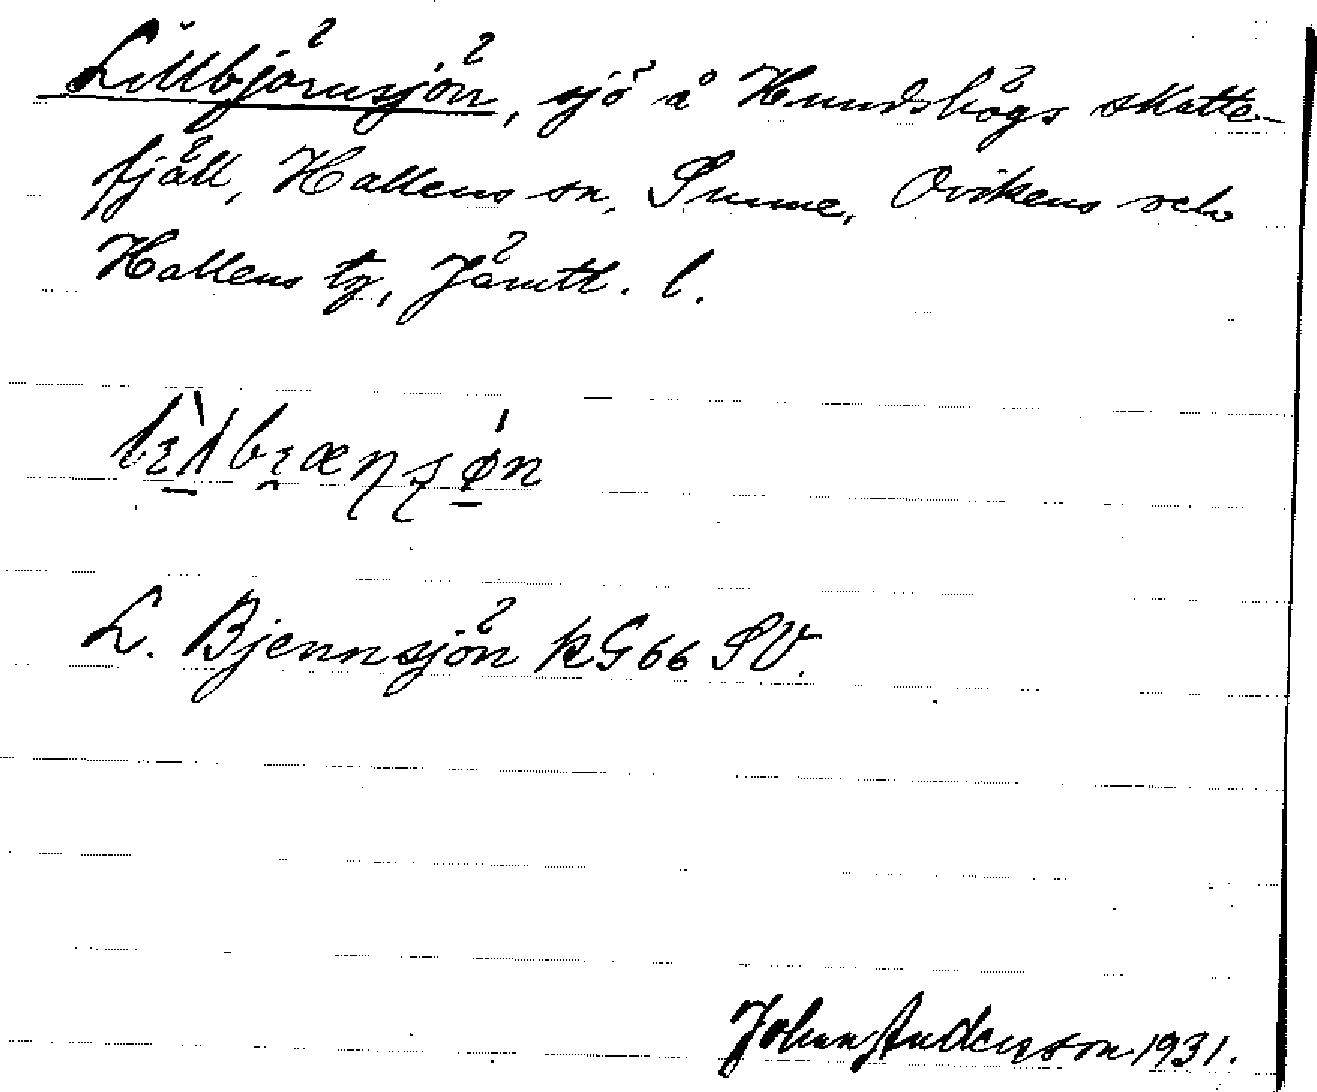 Lillbjörnsjön, sjö å Hundshögs skatte-
fjäll, Hallens sn, Sunne, Ovikens och
Hallens tg, Jämtl. l.
L. Bjennsjön KG 66 SV.
Johan Anderson 1931.